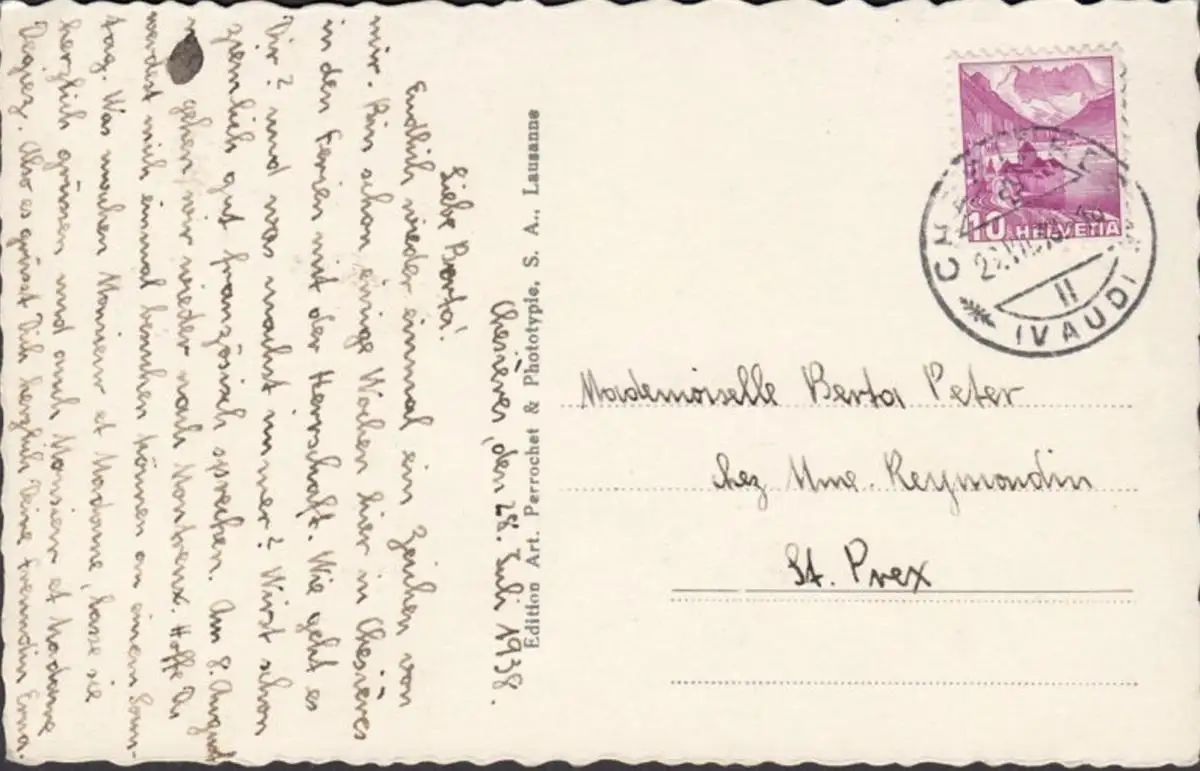 Chesières, den 28. Juli 1938.
Liebe Berta!
Endlich wieder einmal ein Zeichen von
mir. Bin schon einige Wochen hier in Chesières
in den Ferien mit der Herrschaft. Wie geht es
Dir? und was machst immer? Wirst schon
ziemlich gut französisch sprechen. Am 8. August
gehen wir wieder nach Montreux. Hoffe Du
werdest mich einmal besuchen können an einem Sonn-
tag. Was machen Monsieur et Madame, lasse sie
herzlich grüssen und auch Monsieur et Madame
Degiez. Also es grüsst Dich herzlich Deine Freundin Erna.
Edition Art. Perrochet & Phototypie, S. A., Lausanne
10 HELVETIA
VIII
(VAUD)
Mademoiselle Berta Peter
chez Mme. Reymondin
St. Prex